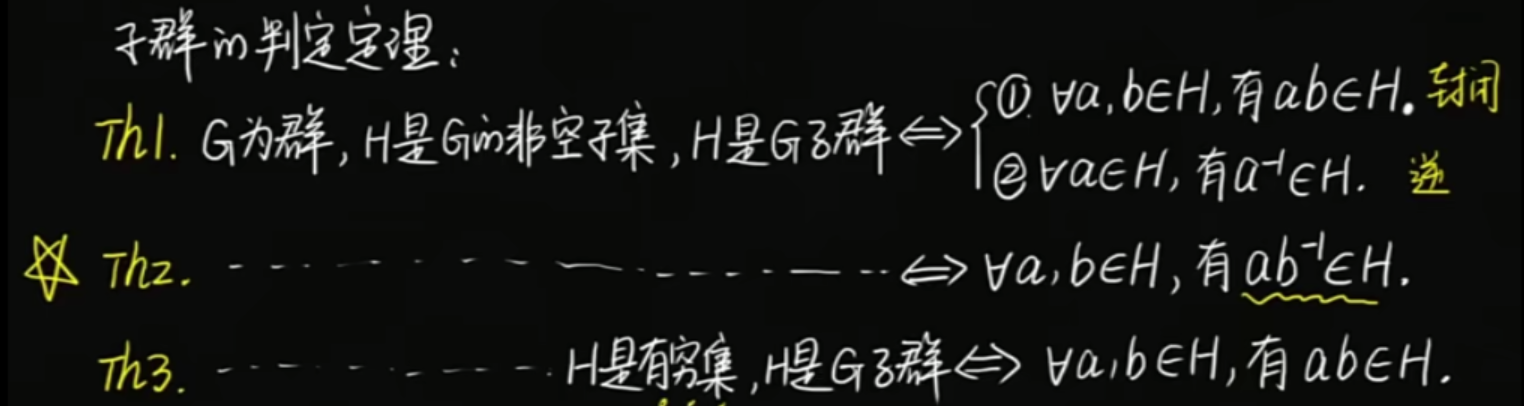 子群的判定定理:
Th1. G为群, H是G的非空子集, H是G子群 ⟺ { ① ∀a,b∈H, 有ab∈H. 封闭
② ∀a∈H, 有a⁻¹∈H. 逆
☆ Th2. ------------ ⟺ ∀a,b∈H, 有ab⁻¹∈H.
Th3. ------------ H是有穷集, H是G子群 ⟺ ∀a,b∈H, 有ab∈H.